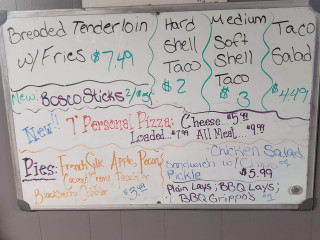 Breaded Tenderloin
w/Fries $7.49
Hard
Shell
Taco
$2
Medium
Soft
Shell
Taco
$3
Taco
Salad
$4.49
New: Bosco Sticks 2/
New! 7" Personal Pizza: Cheese $5.99
Loaded... $7.99 All Meat... $9.99
Pies: French Silk, Apple, Pecan,
Coconut Creme, Peach or
Blackberry Cobbler $3.49
Chicken Salad
Sandwich w/ Chips &
Pickle $5.99
Plain Lays; BBQ Lays;
BBQ Grippos $1